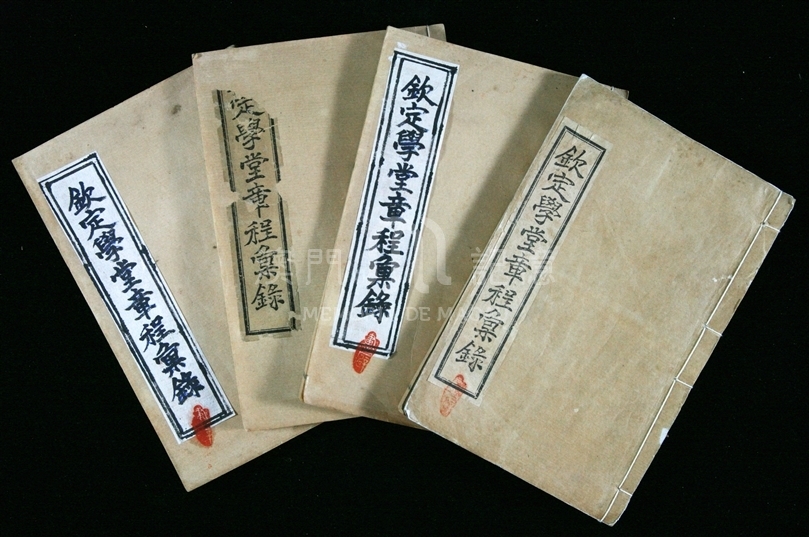 欽定學堂章程彙錄
定學堂章程彙錄
欽定學堂章程彙錄
欽定學堂章程彙錄
澳門 記憶
MEMÓRIA DE MACAU